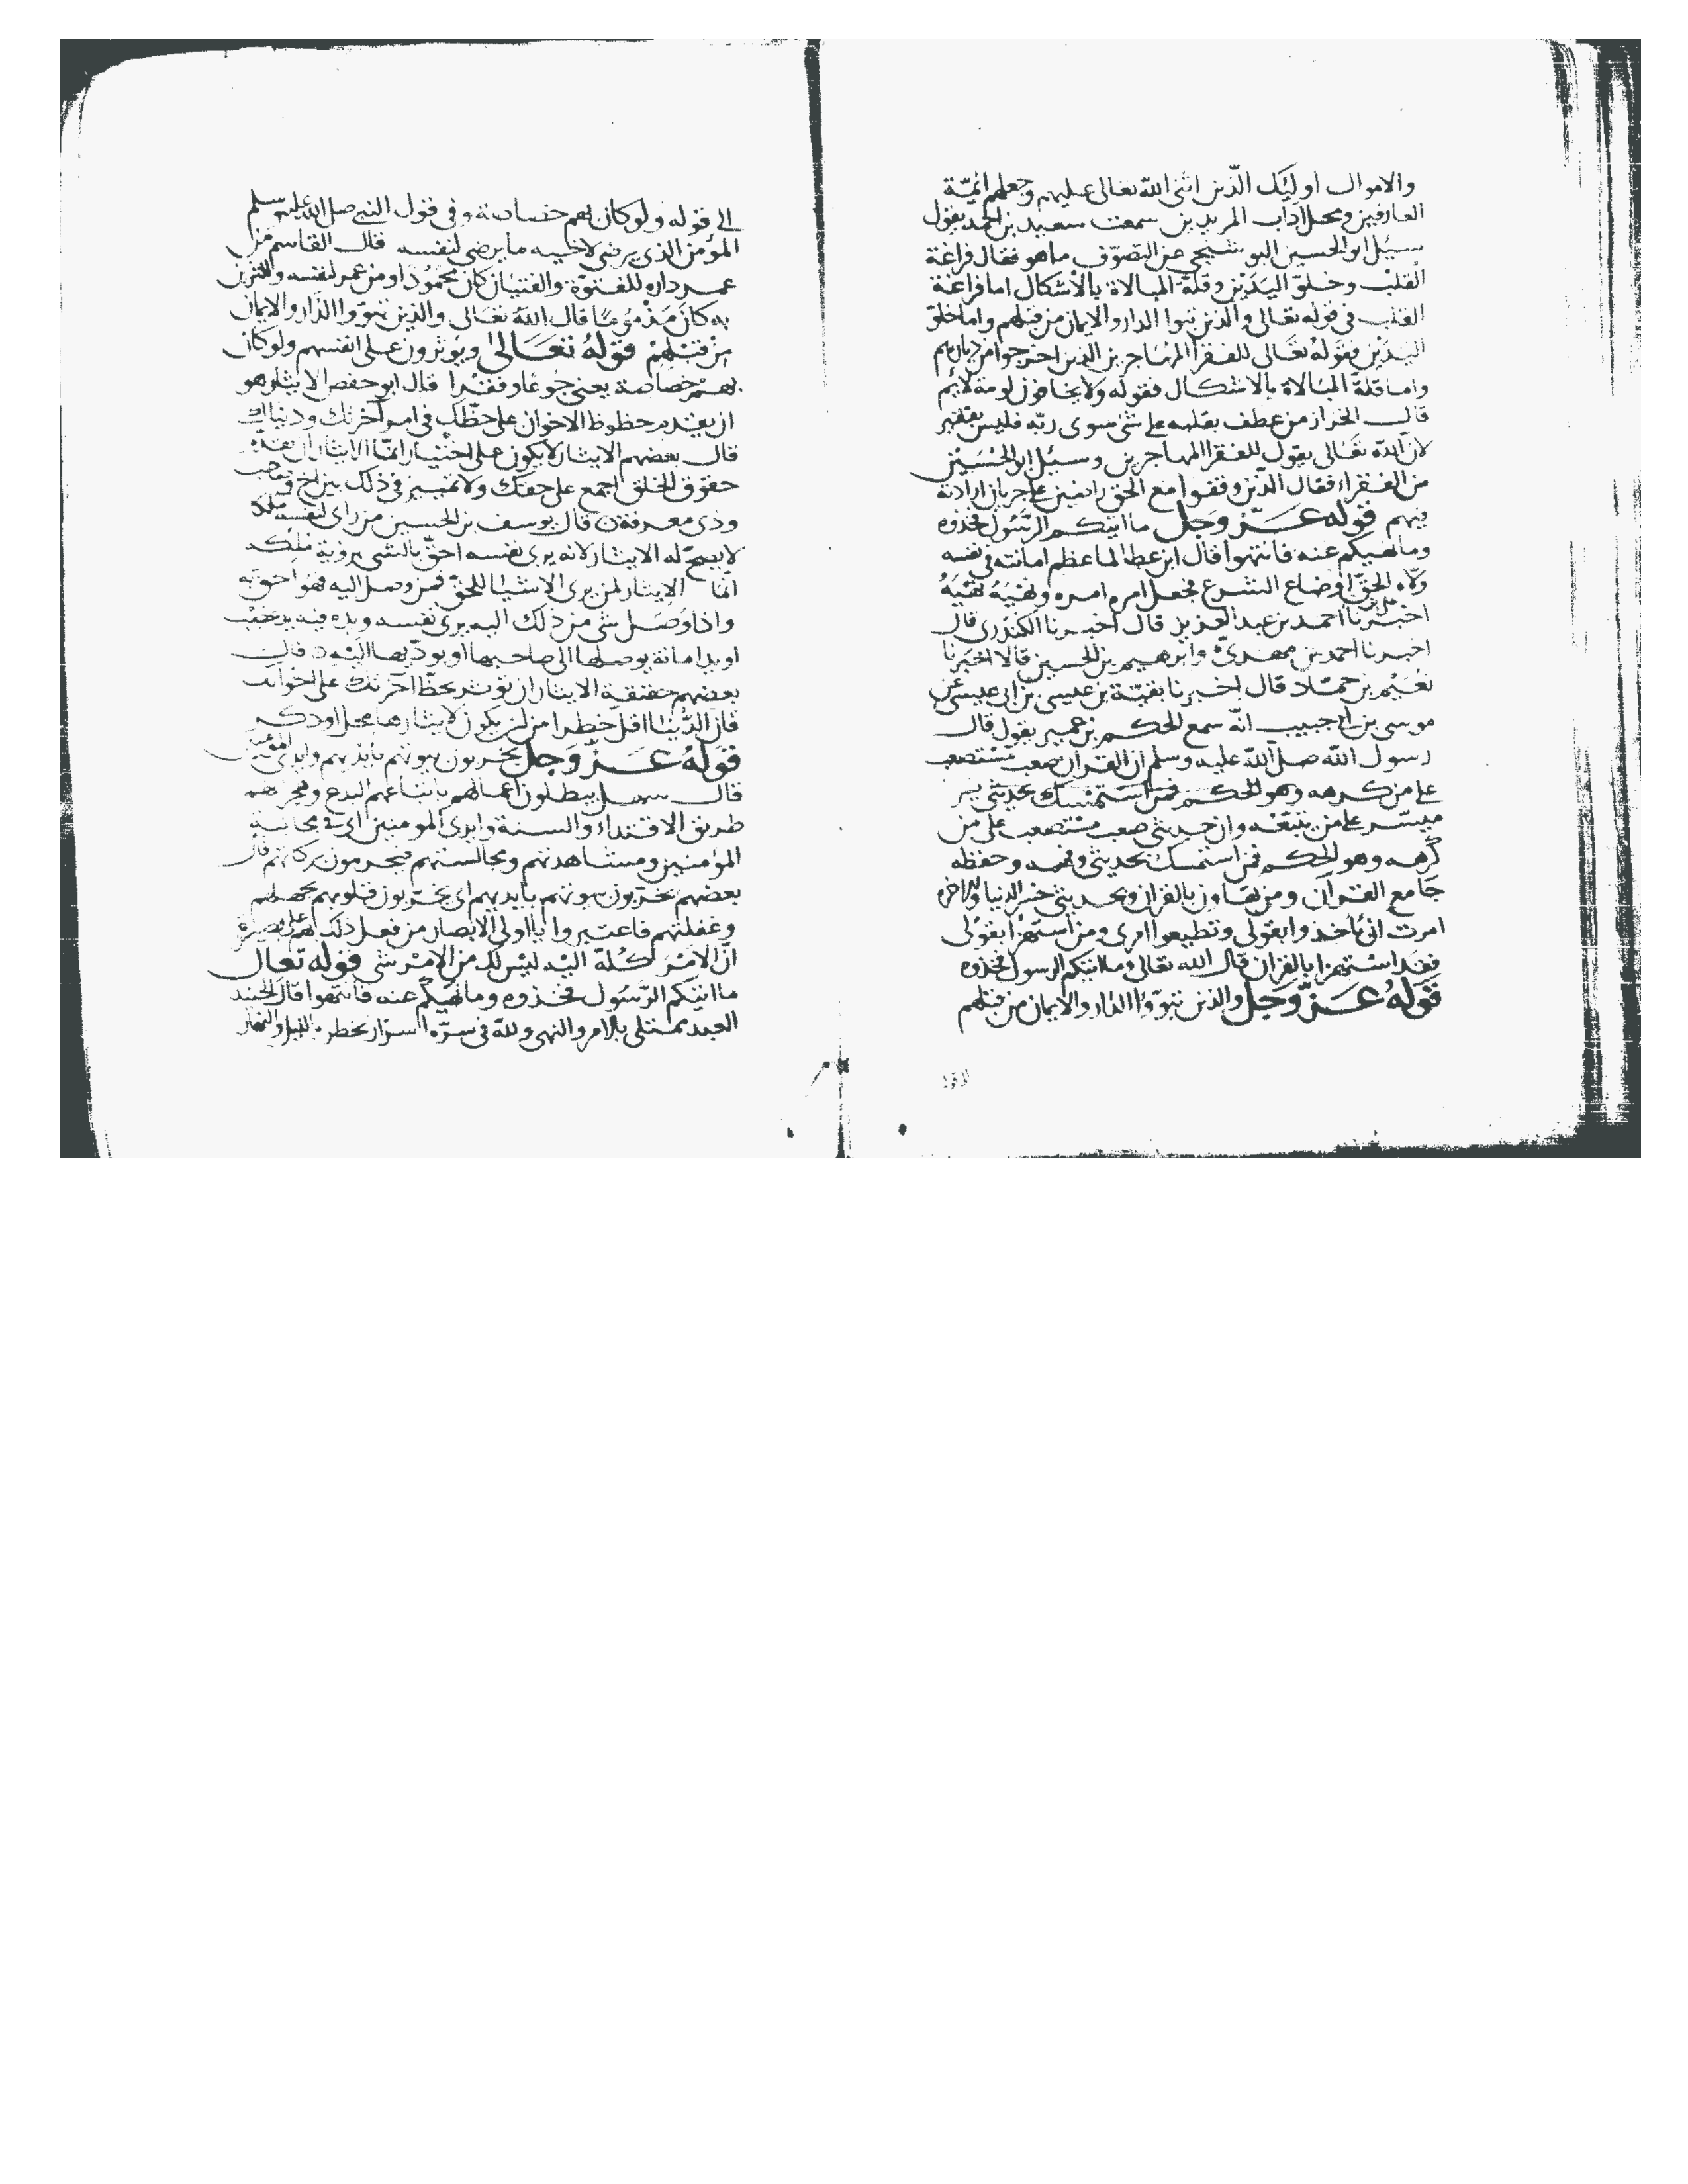 والاموال اوليك الذين اثنى الله تعالى عليهم وجعلهم ائمة
العارفين ومحل اداب المريدين سمعت سعيد بن احمد يقول
سئل ابو الحسين البوشنجي عن التصوف ما هو فقال فراغة
القلب وخلو اليدين وقلة المبالاة بالاشكال اما فراغة
القلب في قوله تعالى والذين تبوا الدار والايمان من قبلهم واما خلو
اليدين فقوله تعالى للفقرا المهاجرين الذين اخرجوا من ديارهم
واما قلة المبالاة بالاشكال فقوله ولا يخافون لومة لائم
قال الخراز من عطف بقلبه على شى سوى ربه فليس بفقير
لان الله تعالى يقول للفقرا المهاجرين وسئل ابو الحسين
من الفقراء فقال الذين وقفوا مع الحق راضين على جريان ارادته
فيهم قوله عز وجل ما اتيكم الرسول فخذوه
وما نهيكم عنه فانتهوا قال ابن عطا لما عظم امانته في نفسه
ولاه الحق اوضاع الشرع فجعل امره امره ونهيه نهيه
اخبرنا احمد بن عبد العزيز قال اخبرنا الكندري قال
اخبرنا احمد بن مهدي وابرهيم بن الحسين قالا اخبرنا
نعيم بن حماد قال اخبرنا بقية بن عيسى بن ابي عيسى عن
موسى بن ابي حبيب انه سمع الحكم بن عمير يقول قال
رسول الله صلى الله عليه وسلم ان القران صعب مستصعب
على من كرهه وهو الحكم فمن استمسك بحديثي
ميسر على من تبعه وان حديثي صعب مستصعب على من
كرهه وهو الحكم فمن استمسك بحديثي وفهمه وحفظه
جا مع القرآن ومن تهاون بالقران وبحديثي خسر الدنيا والاخره
امرت ان ياخذوا بقولي وتطيعوا امري ومن استهزا بقولي
فقد استهزا بالقران قال الله تعالى وما اتيكم الرسول فخذوه
قوله عز وجل والذين تبوؤا الدار والايمان من قبلهم
الى قوله
الى قوله ولو كان بهم خصاصة وفي قول النبي صلى الله عليه وسلم
المؤمن الذي يرضى لاخيه ما يرضى لنفسه قال القاسم من
عمر داره للفتوة والفتيان كان محمودا ومن عمر لنفسه والتزين
به كان مذموما قال الله تعالى والذين تبوؤا الدار والايمان
من قبلهم قوله تعالى ويؤثرون على انفسهم ولو كان
بهم خصاصة يعني جوعا وفقرا قال ابو حفص الايثار هو
ان يقدم حظوظ الاخوان على حظك في امر آخرتك ودنياك
قال بعضهم الايثار لا يكون على اختيار انما الايثار ان تقدم
حقوق الخلق اجمع على حقك ولا تميز في ذلك بين اخ وصاحب
وذي معرفة قال يوسف بن الحسين من راى لنفسه ملكا
لا يصح له الايثار لانه يرى نفسه احق بالشي برؤية ملكه
انما الايثار لمن يرى الاشيا للحق فمن وصل اليه فهو احق به
واذا وصل شى من ذلك اليه يرى نفسه ويده فيه يد غصب
او يد امانة يوصلها الى صاحبها او يوديها اليه قال
بعضهم حقيقة الايثار ان تؤثر بحظ آخرتك على اخوانك
فان الدنيا اقل خطرا من ان يكون لايثارها محل او ذكر
قوله عز وجل يخربون بيوتهم بايديهم وايدي المؤمنين
قال سهل يبطلون اعمالهم باتباعهم البدع وهجرهم
طريق الاقتداء والسنة وايدي المومنين اي في مجانبة
المؤمنين ومشاهدتهم ومجالستهم فيحرمون بركاتهم قال
بعضهم يخربون بيوتهم بايديهم اى يخربون قلوبهم بجهلهم
وغفلتهم فاعتبروا يا اولي الابصار من فعل ذلك
ان الامر كله اليه ليس لك من الامر شى قوله تعالى
ما اتيكم الرسول فخذوه وما نهيكم عنه فانتهوا قال الجنيد
العبد مبتلى بالامر والنهى ولله في سره اسرار يخطر بالليل والنهار